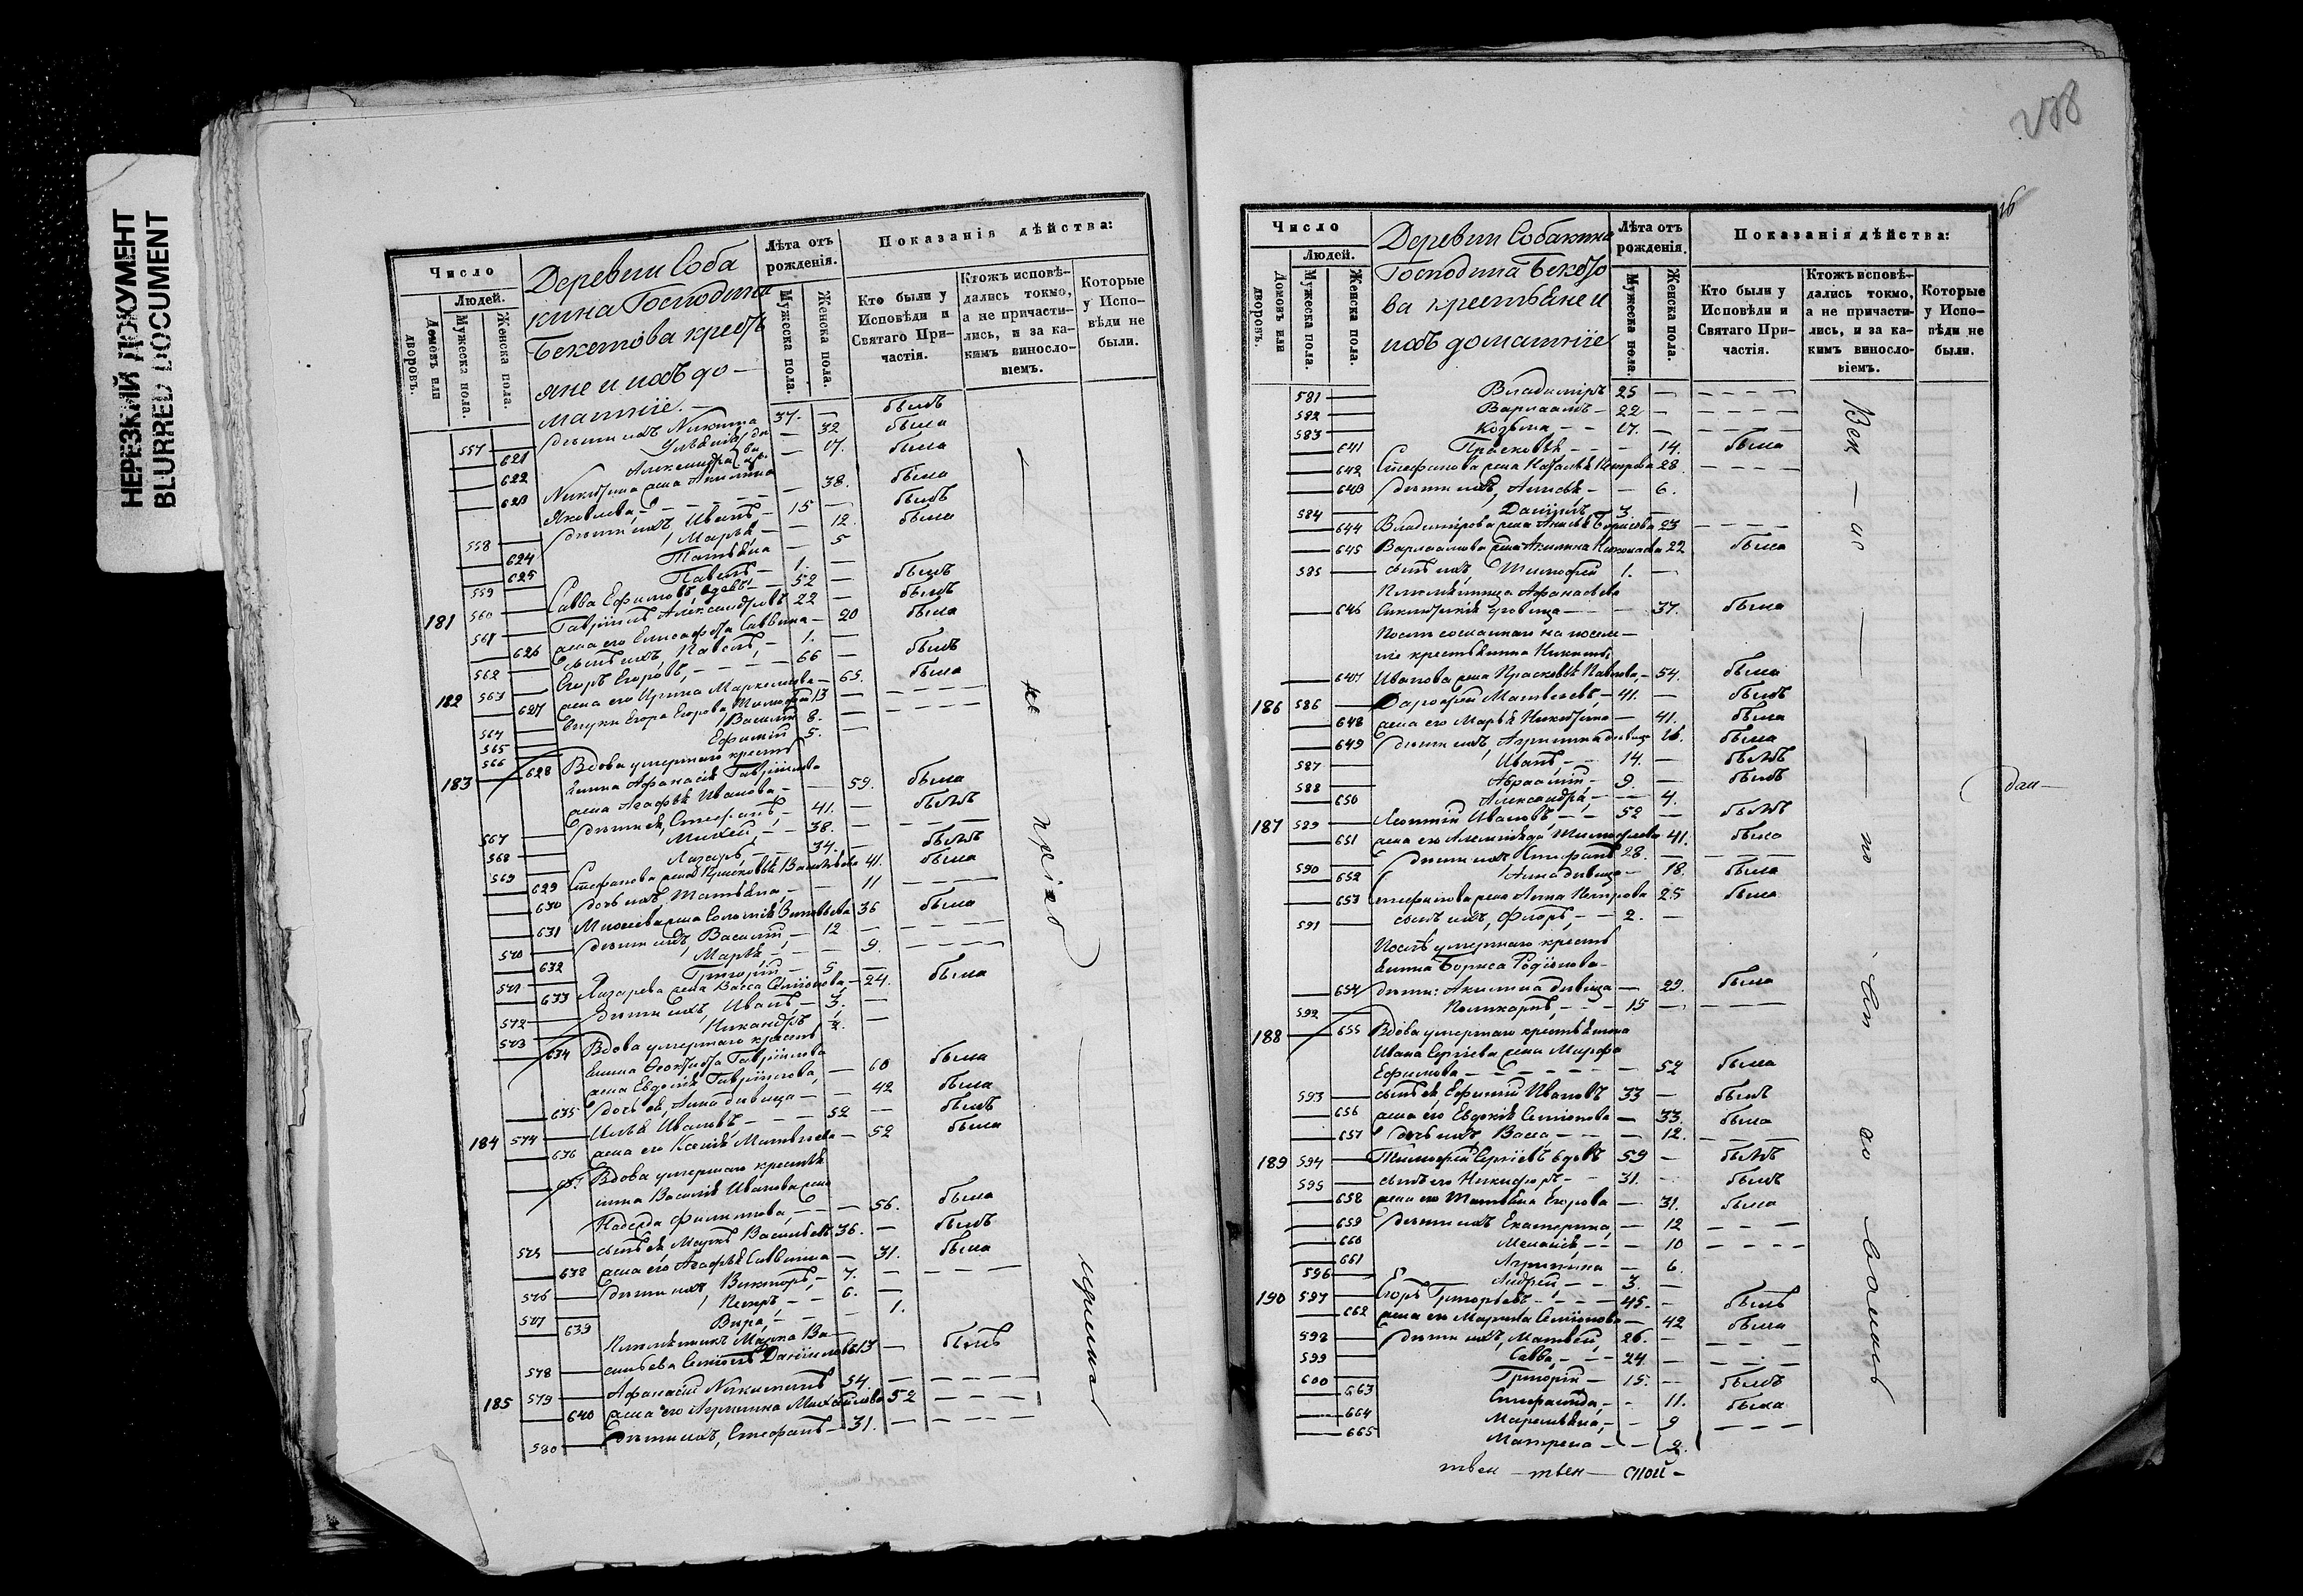 НЕРЕЗКИЙ ДОКУМЕНТ
BLURRED DOCUMENT
Число
Людей.
Домовъ или дворовъ.
Мужеска пола.
Женска пола.
Деревни Соба
кина Господина
Бекетова крестъ
яне и ихъ до-
машніе.
Лѣта отъ рожденія.
Мужеска пола.
Женска пола.
Показанія дѣйства:
Кто были у Исповѣди и Святаго Причастія.
Ктожъ исповѣ-
дались токмо,
а не причасти-
лись, и за ка-
кимъ виносло-
віемъ.
Которые у Испо-
вѣди не были.
557 дѣти ихъ Никита 37. — былъ
621 — 32 была
622 Александра — 17. была
623 Никитина жена Акилина
Яковлева, — 38. была
558 дѣти ихъ Иванъ — 15 — былъ
624 Марья, — 12. была
625 Татьяна — 5
559 Павелъ — 1. —
181 560 Савва Ефимовъ вдовъ — 52 — былъ
561 Гавріилъ Александровъ 22 — былъ
626 жена его Елисафета Саввина — 20 была
562 сынъ ихъ Павелъ, — 1. —
182 563 Егоръ Егоровъ, — 66 — былъ
627 жена его Ирина Маркелова — 65. была
564 Внуки Егора Егорова, Тимофей 13 —
565 Василій 8. —
566 Ефимій 5. —
183 628 Вдова умершаго кресть
янина Афанасія Гавріилова
жена Агафья Иванова — 59. была
567 дѣти ея, Стефанъ, — 41. — былъ
568 Михей, — 38. —
569 Лазарь, — 34. — былъ
629 Стефанова жена Прасковья Васильева 41. была
630 дочь ихъ, Татьяна, — 11
631 Михеева жена Соломія Зиновьева 36 была
570 дѣти ихъ, Василій, — 12 —
632 Марья, — 9.
571 Григорій — 5 —
633 Лазарева жена Васса Семіонова, — 24. была
572 дѣти ихъ, Иванъ — 3. —
573 Никандръ
634 Вдова умершаго кресть
янина Гавріилова
жена Евдокія Гавріилова, — 60 была
635 дочь ея, Анна дѣвица — 42 была
184 574 Илья Ивановъ — 52 — былъ
636 жена его Ксенія Матвѣева — 52 была
637 Вдова умершаго крестья
нина Василія Иванова жена
Надежда Филипова, — 56. была
575 сынъ ея Маркъ Васильевъ 36. — былъ
638 жена его Агафья Саввина — 31. была
576 дѣти ихъ, Викторъ, — 7. —
577 Петръ, — 6. —
639 Вѣра, — 1.
Племянникъ Марка Ва-
578 сильева Семіонъ Даніиловъ 13 — былъ
185 579 Афанасій Никитинъ 54. —
640 жена его Агрипина Михайлова 52
580 дѣти ихъ, Стефанъ — 31. —
208
Число
Людей.
Домовъ или дворовъ.
Мужеска пола.
Женска пола.
Деревни Собакина
Господина Бекето
ва крестьяне и
ихъ домашніе
Лѣта отъ рожденія.
Мужеска пола.
Женска пола.
Показанія дѣйства:
Кто были у Исповѣди и Святаго При-
частія.
Ктожъ исповѣ-
дались токмо,
а не причасти-
лись, и за ка-
кимъ винослo-
віемъ.
Которые у Испо-
вѣди не были.
581 Владиміръ 25 —
582 Варлаамъ — 22 —
583 Козьма — 17. —
641 Прасковья — 14. была
642 Стефанова жена Наталья Петрова 28.
643 дѣти ихъ, — 6.
584 Даніилъ, 3. —
644 Владимірова жена Борисова 23
645 Варлаамова жена Акилина 22 была
585 сынъ ихъ, Тимофей 1. —
Племянница Афанасьева
646 дѣвица — 37. была
Послѣ сосланнаго на поселе-
ніе крестьянина Никиты
647 Иванова жена Прасковья Павлова, — 54. была
186 586 Дорофей Матвѣевъ, — 41. — былъ
648 жена его Марья Никитина — 41. была
649 дѣти ихъ, Агрипина дѣвица 16. была
587 Иванъ — 14. — былъ
588 Авраамій — 9. — былъ
650 Александра, — 4.
187 589 Леонтій Ивановъ — 52 — былъ
651 жена его Тимофеева 41. была
590 дѣти ихъ Стефанъ 28. —
652 Анна дѣвица — 18. была
653 Стефанова жена Анна Петрова 25 была
591 сынъ ихъ, Флоръ, — 2. —
Послѣ умершаго кресть
янина Бориса Родіонова —
654 дѣти: Акилина дѣвица — 29. была
592 Поликарпъ, — 15 —
188 655 Вдова умершаго крестьянина
Ивана Сергіева жена Марфа
Ефимова — 52 была
593 сынъ ея Ефимій Ивановъ 33 — былъ
656 жена его Евдокія Семіонова — 33. была
657 дочь ихъ, Васса — 12.
189 594 Тимофей Сергіевъ вдовъ 59 — былъ
595 сынъ его Никифоръ — 31. — былъ
658 жена его Татьяна Егорова — 31. была
659 дѣти ихъ Екатерина, — 12
660 Меланія, — 10
661 Агрипина — 6.
596 Андрей, — 3. —
190 597 Егоръ Григорьевъ — 45. — былъ
662 жена его Марина Семіонова — 42 была
598 дѣти ихъ, Матвей, 26. —
599 Савва, — 24. —
600 Григорій — 15. — былъ
663 Стефанида, — 11. была
664 Маремьяна, — 9
665 Матрена — 2.
твен — твен — спои —